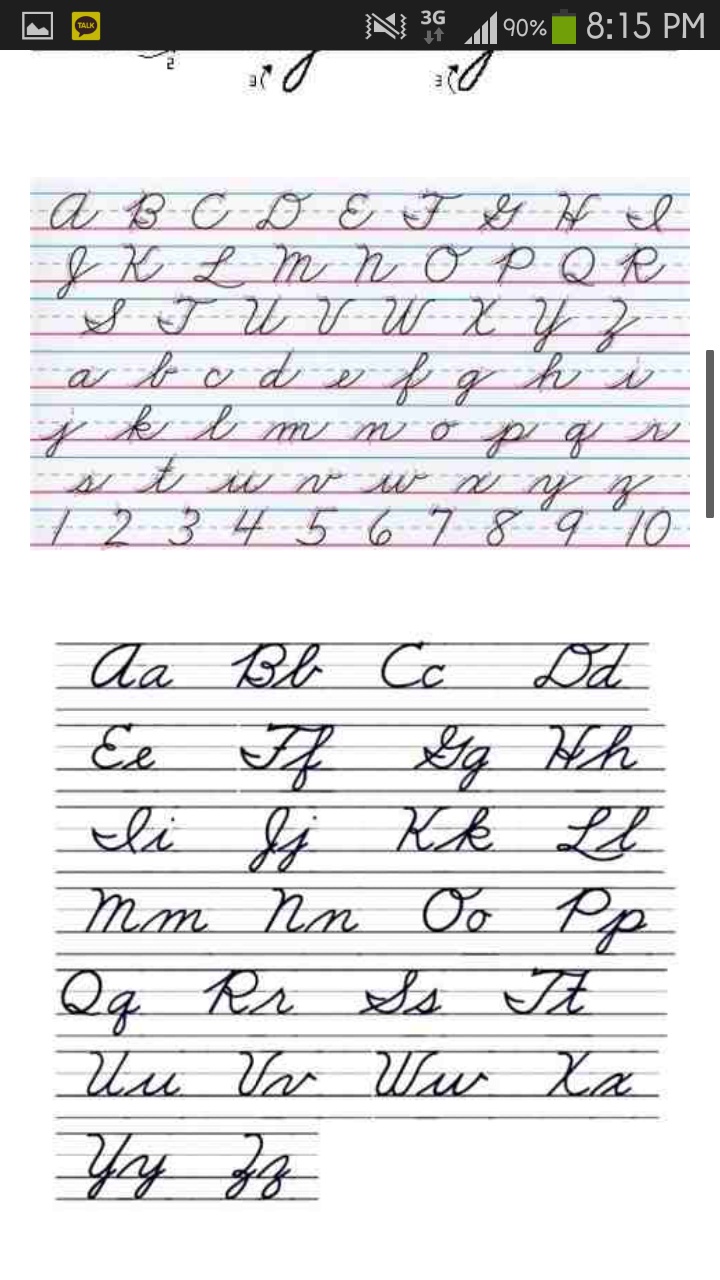 TALK 3G 90% 8:15 PM
2
3 3
A B C D E F G H I
J K L M N O P Q R
S T U V W X Y Z
a b c d e f g h i
j k l m n o p q r
s t u v w x y z
1 2 3 4 5 6 7 8 9 10
Aa Bb Cc Dd
Ee Ff Gg Hh
Ii Jj Kk Ll
Mm Nn Oo Pp
Qq Rr Ss Tt
Uu Vv Ww Xx
Yy Zz